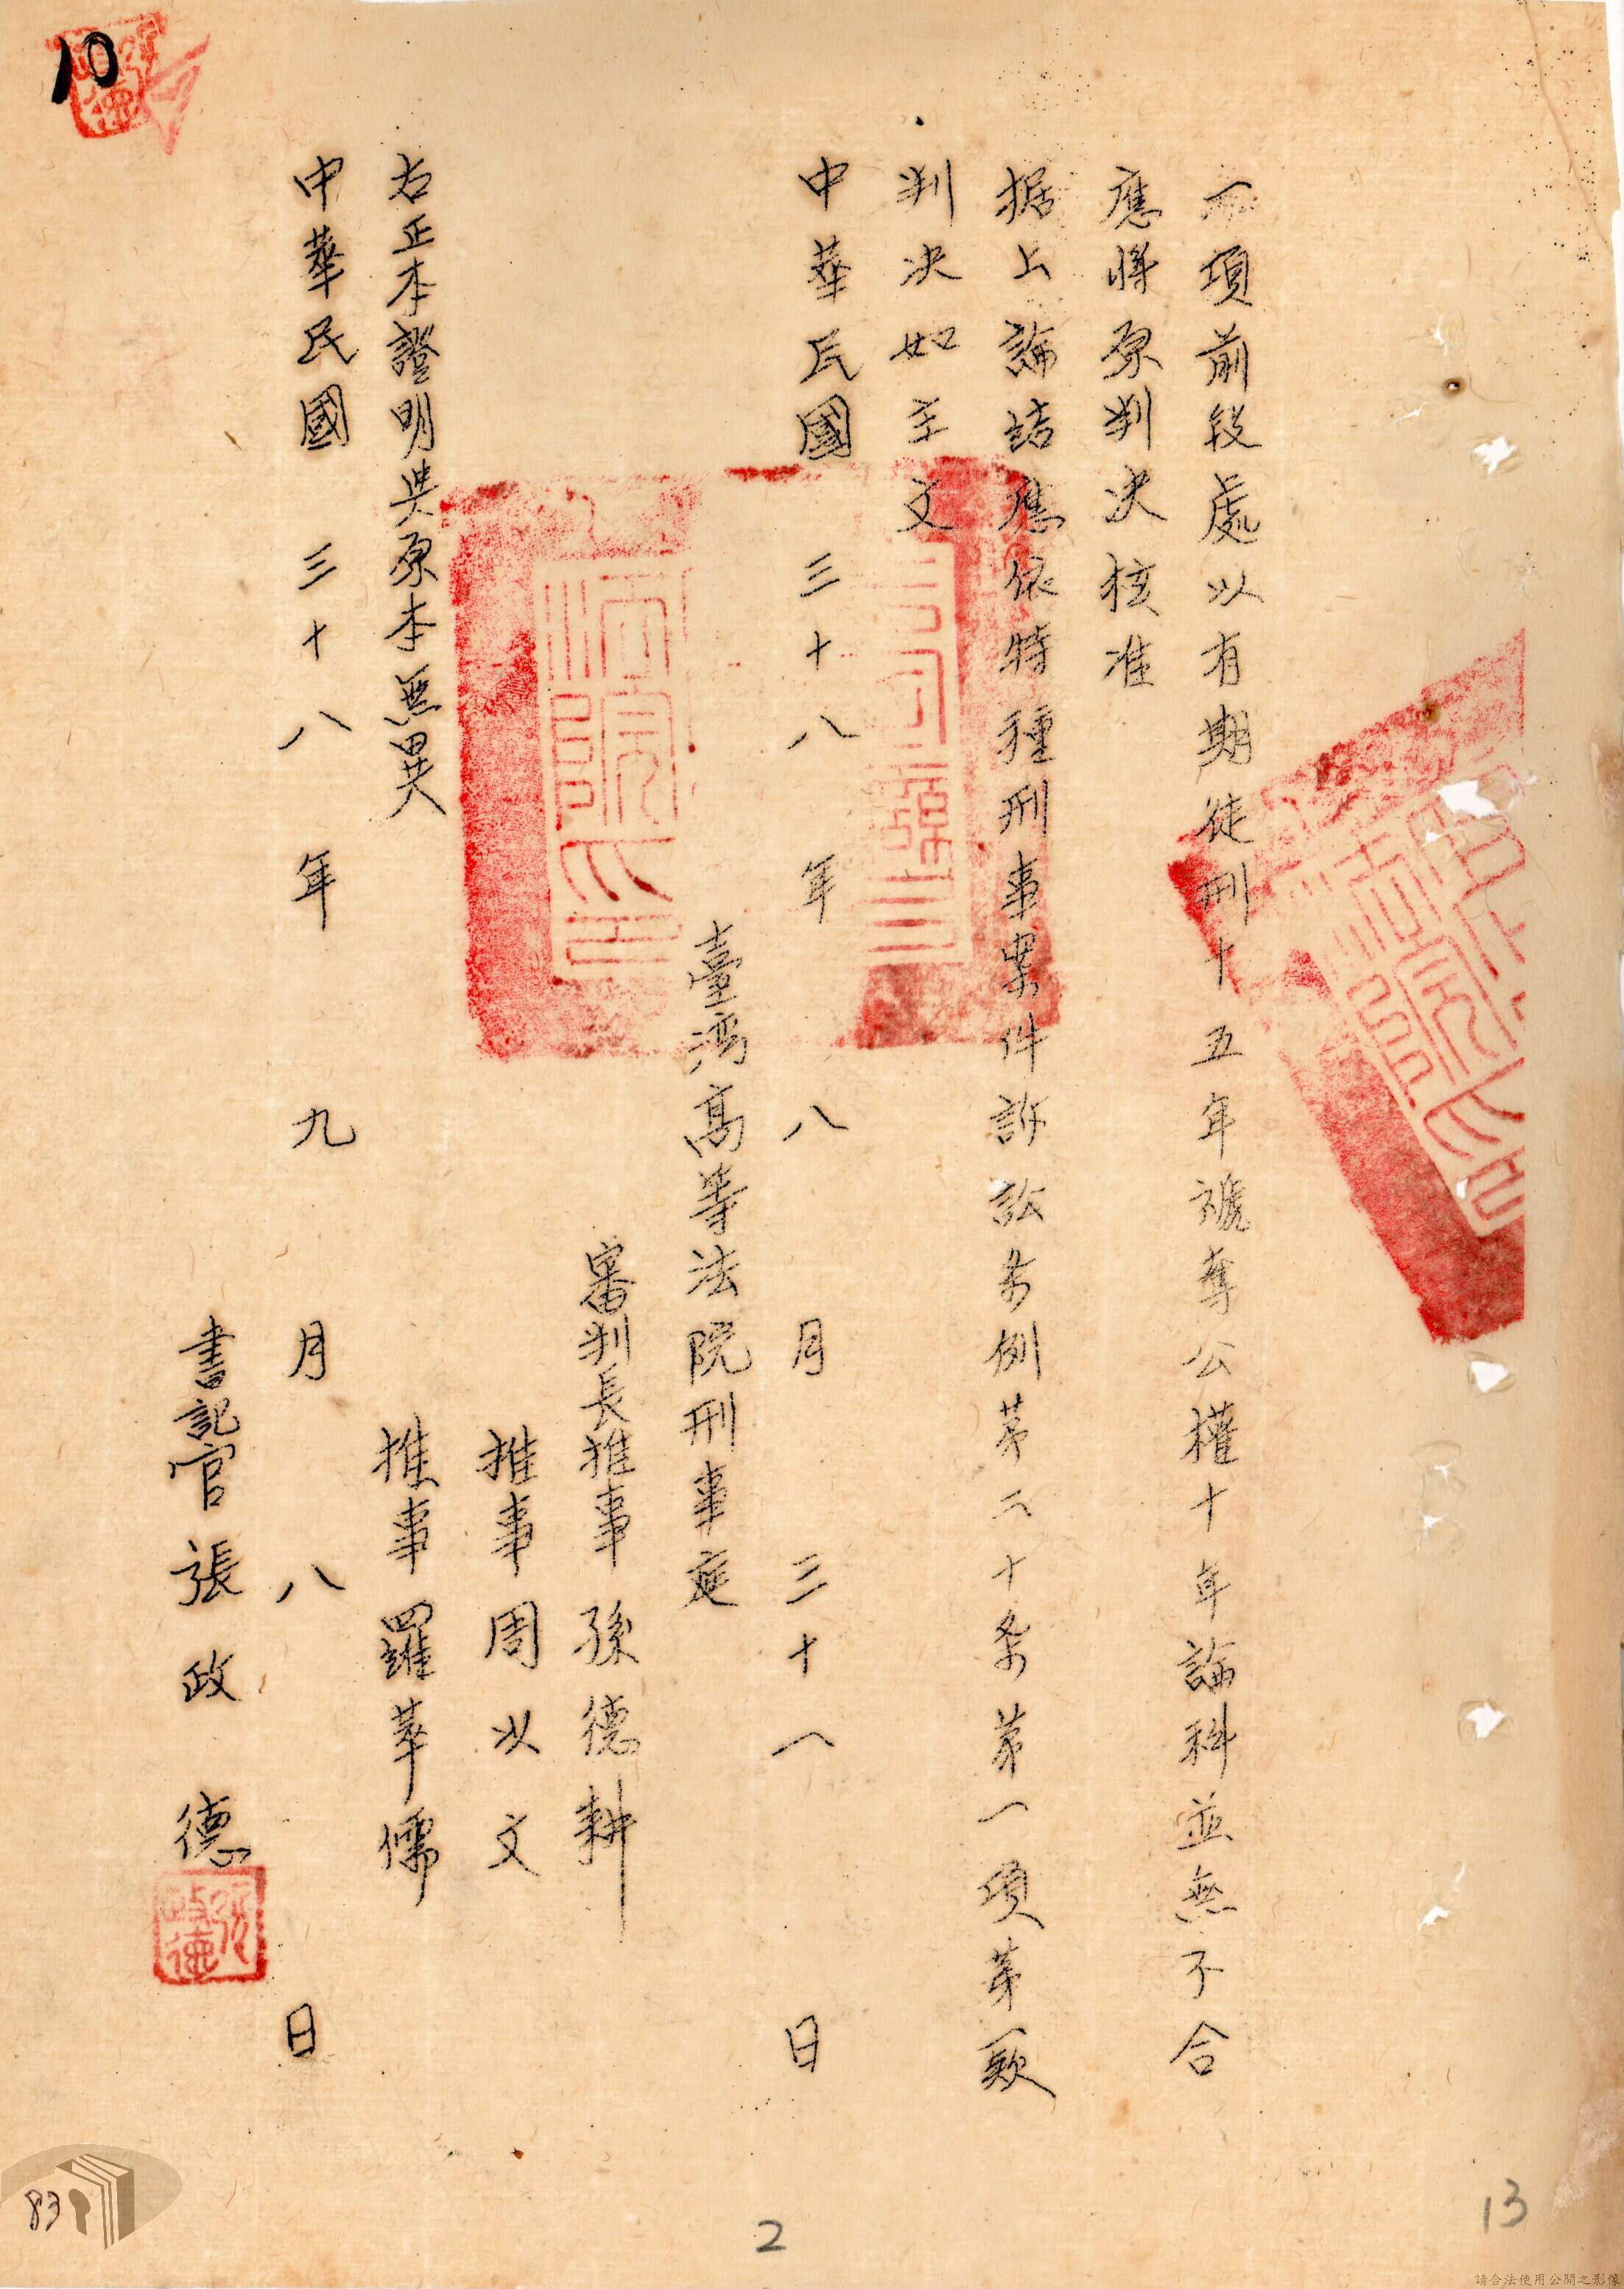 一項前段處以有期徒刑十五年褫奪公權十年論科並無不合
應將原判決核准
据上論結應依特種刑事案件訴訟条例第二十条第一項第一款
判決如主文
中華民國三十八年八月三十一日
臺灣高等法院刑事庭
審判長推事 孫德耕
推事 周以文
推事 羅華儒
右正本證明與原本無異
中華民國三十八年九月八日
書記官 張政德
張政德
10
83
2
13
請合法使用公開之影像